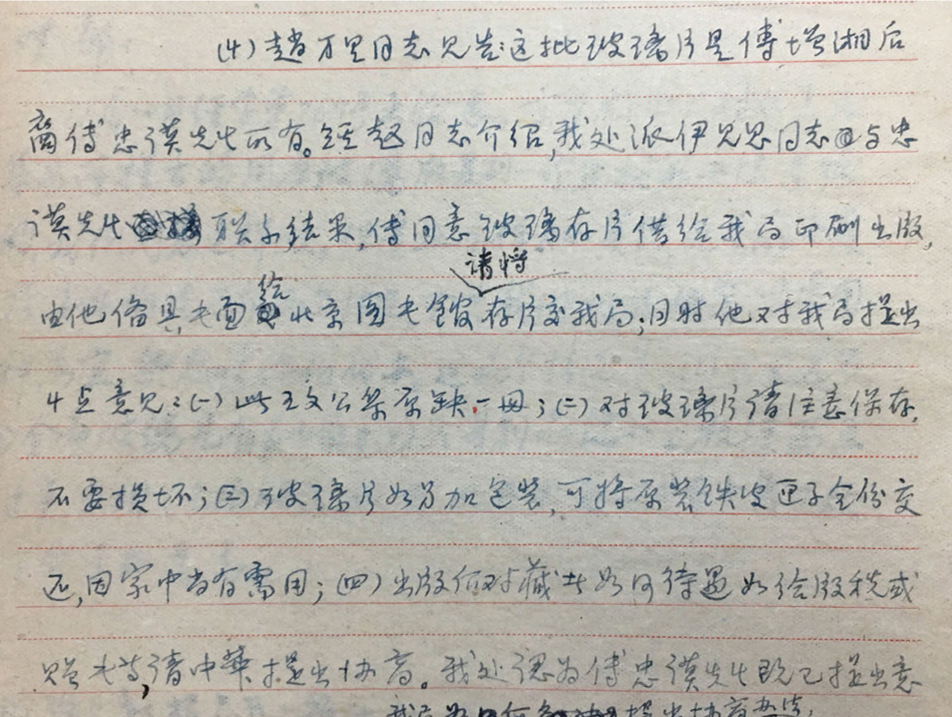 (4)赵万里同志见告:这批玻璃片是傅增湘后
裔傅忠谟先生所有。经赵同志介绍,我处派伊见思同志与忠
谟先生联系结果,傅同意玻璃存片借给我局印刷出版,
请将
由他备具书面给北京图书馆存片交我局;同时他又对我局提出
4点意见:(一)此王文公集原缺一册;(二)对玻璃片请注意保存,
不要损坏;(三)玻璃片如另加包装,可将原装铁皮匣子全份交
还,因家中尚有需用;(四)出版后对藏者如何待遇如给版税或
赠书等,请中华提出协商。我处认为傅忠谟先生既已提出意
提出协商办法,